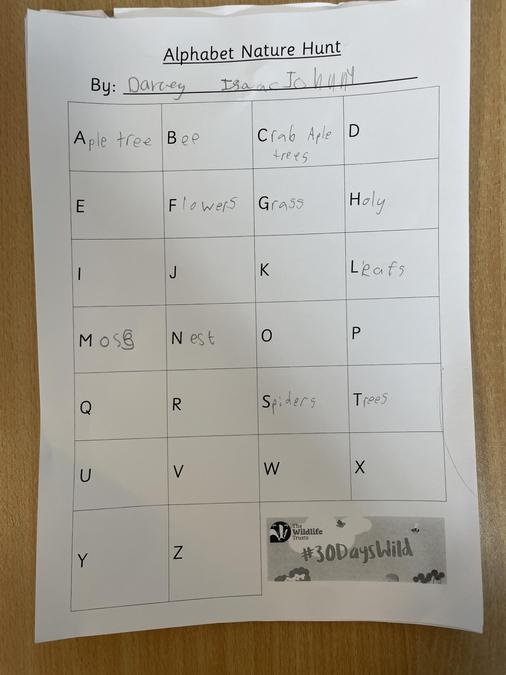 Alphabet Nature Hunt
By: Darcey Isaac Johnny
Aple tree Bee Crab Aple D
trees
E Flowers Grass Holy
I J K Leafs
Moss Nest O P
Q R Spiders Trees
U V W X
Y Z
The
Wildlife
Trusts
#30DaysWild